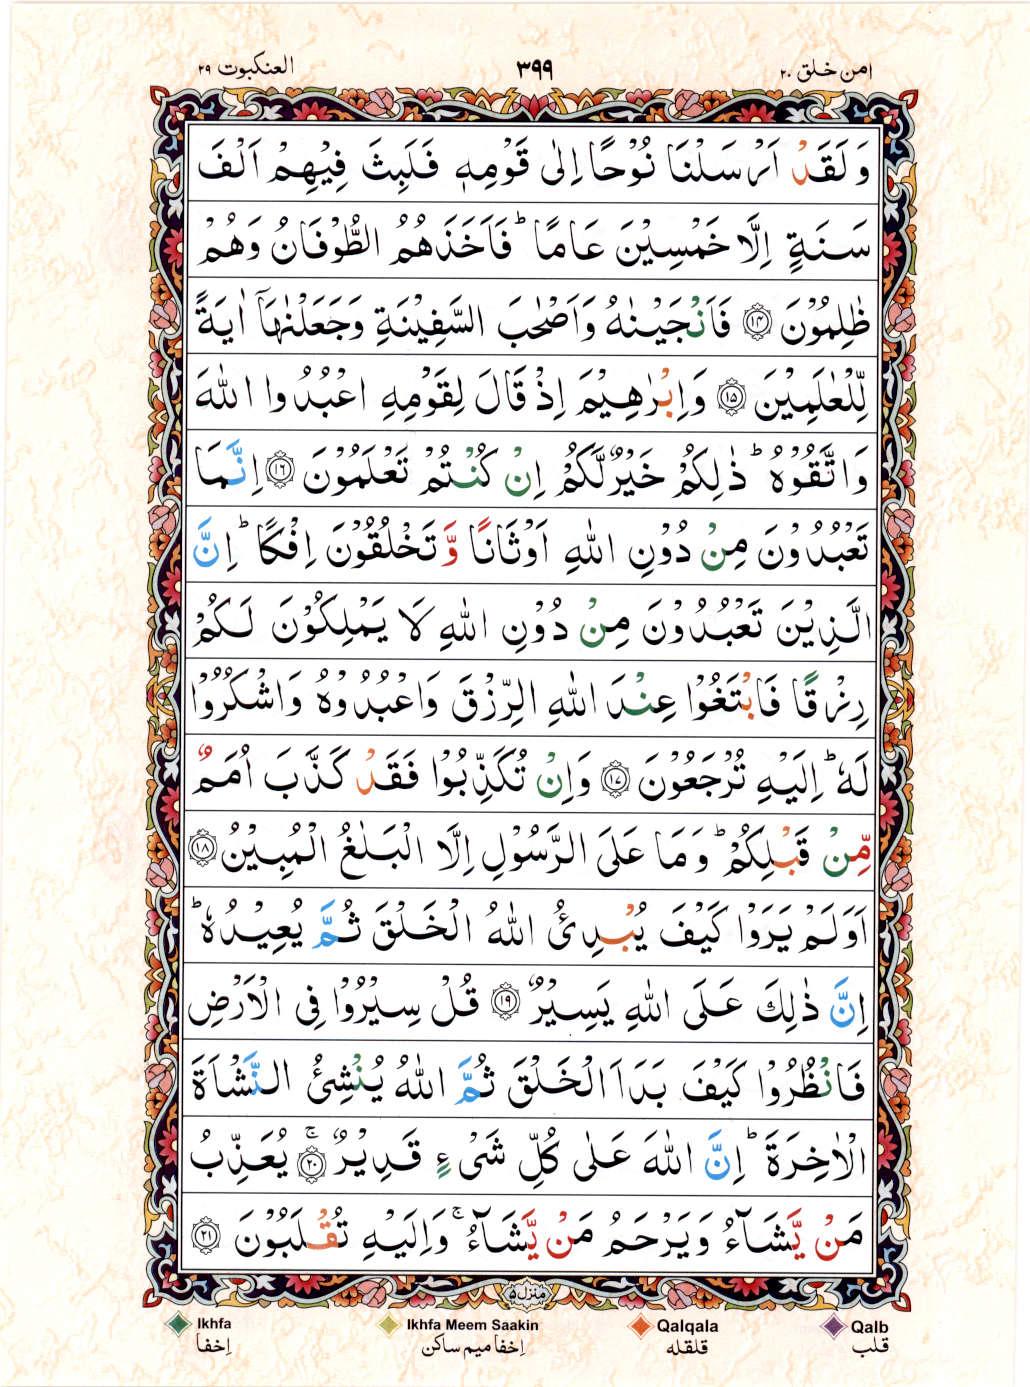 امن خلق ۲۰
۳۹۹
العنكبوت ۲۹
وَلَقَدْ اَرْسَلْنَا نُوْحًا اِلٰى قَوْمِهٖ فَلَبِثَ فِيْهِمْ اَلْفَ
سَنَةٍ اِلَّا خَمْسِيْنَ عَامًا ؕ فَاَخَذَهُمُ الطُّوْفَانُ وَهُمْ
ظٰلِمُوْنَ ۝۱۴ فَاَنْجَيْنٰهُ وَاَصْحٰبَ السَّفِيْنَةِ وَجَعَلْنٰهَاۤ اٰيَةً
لِّلْعٰلَمِيْنَ ۝۱۵ وَاِبْرٰهِيْمَ اِذْ قَالَ لِقَوْمِهِ اعْبُدُوا اللّٰهَ
وَاتَّقُوْهُ ؕ ذٰلِكُمْ خَيْرٌ لَّكُمْ اِنْ كُنْتُمْ تَعْلَمُوْنَ ۝۱۶ اِنَّمَا
تَعْبُدُوْنَ مِنْ دُوْنِ اللّٰهِ اَوْثَانًا وَّتَخْلُقُوْنَ اِفْكًا ؕ اِنَّ
الَّذِيْنَ تَعْبُدُوْنَ مِنْ دُوْنِ اللّٰهِ لَا يَمْلِكُوْنَ لَكُمْ
رِزْقًا فَابْتَغُوْا عِنْدَ اللّٰهِ الرِّزْقَ وَاعْبُدُوْهُ وَاشْكُرُوْا
لَهٗ ؕ اِلَيْهِ تُرْجَعُوْنَ ۝۱۷ وَاِنْ تُكَذِّبُوْا فَقَدْ كَذَّبَ اُمَمٌ
مِّنْ قَبْلِكُمْ ؕ وَمَا عَلَى الرَّسُوْلِ اِلَّا الْبَلٰغُ الْمُبِيْنُ ۝۱۸
اَوَلَمْ يَرَوْا كَيْفَ يُبْدِئُ اللّٰهُ الْخَلْقَ ثُمَّ يُعِيْدُهٗ ؕ
اِنَّ ذٰلِكَ عَلَى اللّٰهِ يَسِيْرٌ ۝۱۹ قُلْ سِيْرُوْا فِى الْاَرْضِ
فَانْظُرُوْا كَيْفَ بَدَاَ الْخَلْقَ ثُمَّ اللّٰهُ يُنْشِئُ النَّشْاَةَ
الْاٰخِرَةَ ؕ اِنَّ اللّٰهَ عَلٰى كُلِّ شَىْءٍ قَدِيْرٌ ۚ۝۲۰ يُعَذِّبُ
مَنْ يَّشَآءُ وَيَرْحَمُ مَنْ يَّشَآءُ ۚ وَاِلَيْهِ تُقْلَبُوْنَ ۝۲۱
منزل ۵
Ikhfa Ikhfa Meem Saakin Qalqala Qalb
اِخفا اِخفا میم ساکن قلقله قلب